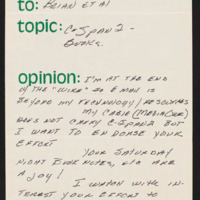 to: BRIAN ET AL
topic: C-SPAN 2 -
BOOKS.
opinion: I'M AT THE END
OF THE "WIRE" SO E MAIL IS
BEYOND MY TECHNOLOGY/RESOURCES
MY CABLE (MEDIAONE)
DOES NOT CARRY C-SPAN2 BUT
I WANT TO ENDORSE YOUR
EFFORT
YOUR SATURDAY
NIGHT BOOK NOTES, ARE
A JOY!
I WATCH WITH IN-
TEREST YOUR EFFORT TO